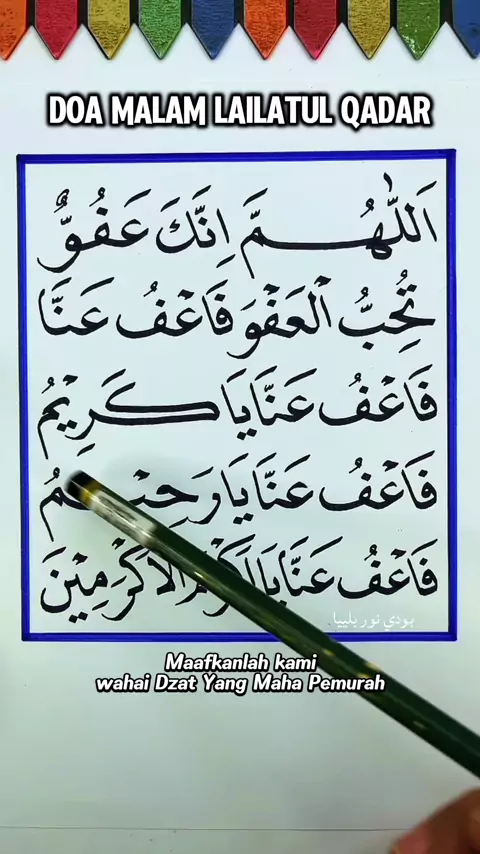 DOA MALAM LAILATUL QADAR
اَللّٰهُمَّ اِنَّكَ عَفُوٌّ
تُحِبُّ الْعَفْوَ فَاعْفُ عَنَّا
فَاعْفُ عَنَّا يَا كَرِيْمُ
فَاعْفُ عَنَّا يَا
فَاعْفُ عَنَّا الْاَكْرَمِيْنَ
بودي نور بلييا
Maafkanlah kami
wahai Dzat Yang Maha Pemurah